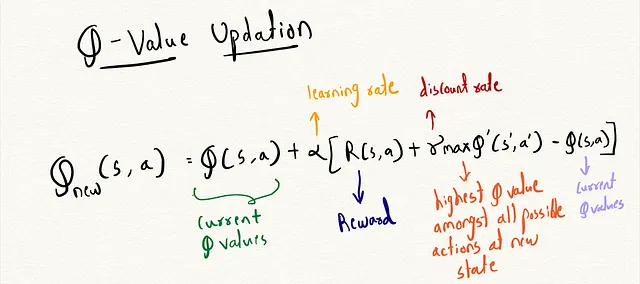 Q-Value Updation
learning rate
discount rate
Qnew(s,a) = Q(s,a) + α[R(s,a) + γmaxQ'(s',a') - Q(s,a)]
current
Q values
Reward
highest Q value
amongst all possible
actions at new
state
current
Q values